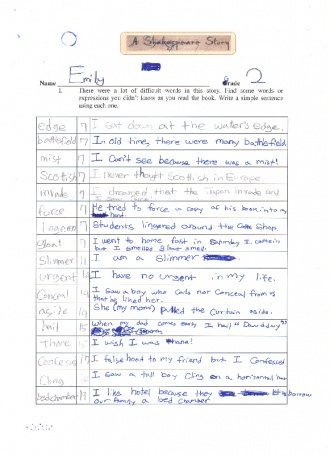 A Shakespeare Story
Name Emily Grade 2
1. There were a lot of difficult words in this story. Find some words or
expressions you didn't know as you read the book. Write a simple sentence
using each one.
edge 7 I sat down at the water's edge.
battlefield 7 In old time, there were many battlefield
mist 7 I Can't see because there was a mist!
Scottish 7 I never thought Scottish in Europe.
invade 7 I that the Japan invade and
force 7 He tried to force a copy of his book into my
hand.
lingered Students lingered around the Shop.
7 I went to home fast in I came in
but I smelled
Slimmer 11 I am a Slimmer
urgent I have no urgent in my life.
Conceal I saw a boy who Conceal from
that he liked her.
aside She (my mom) pulled the Curtain aside.
hail 15 When my dad comes early I hail
I wish I was
Confessed 17 I false hand to my friend but I Confessed
Cling I saw a tall boy Cling on a horizontal
bedchamber I like hotel because they borrow
our family a bed chamber